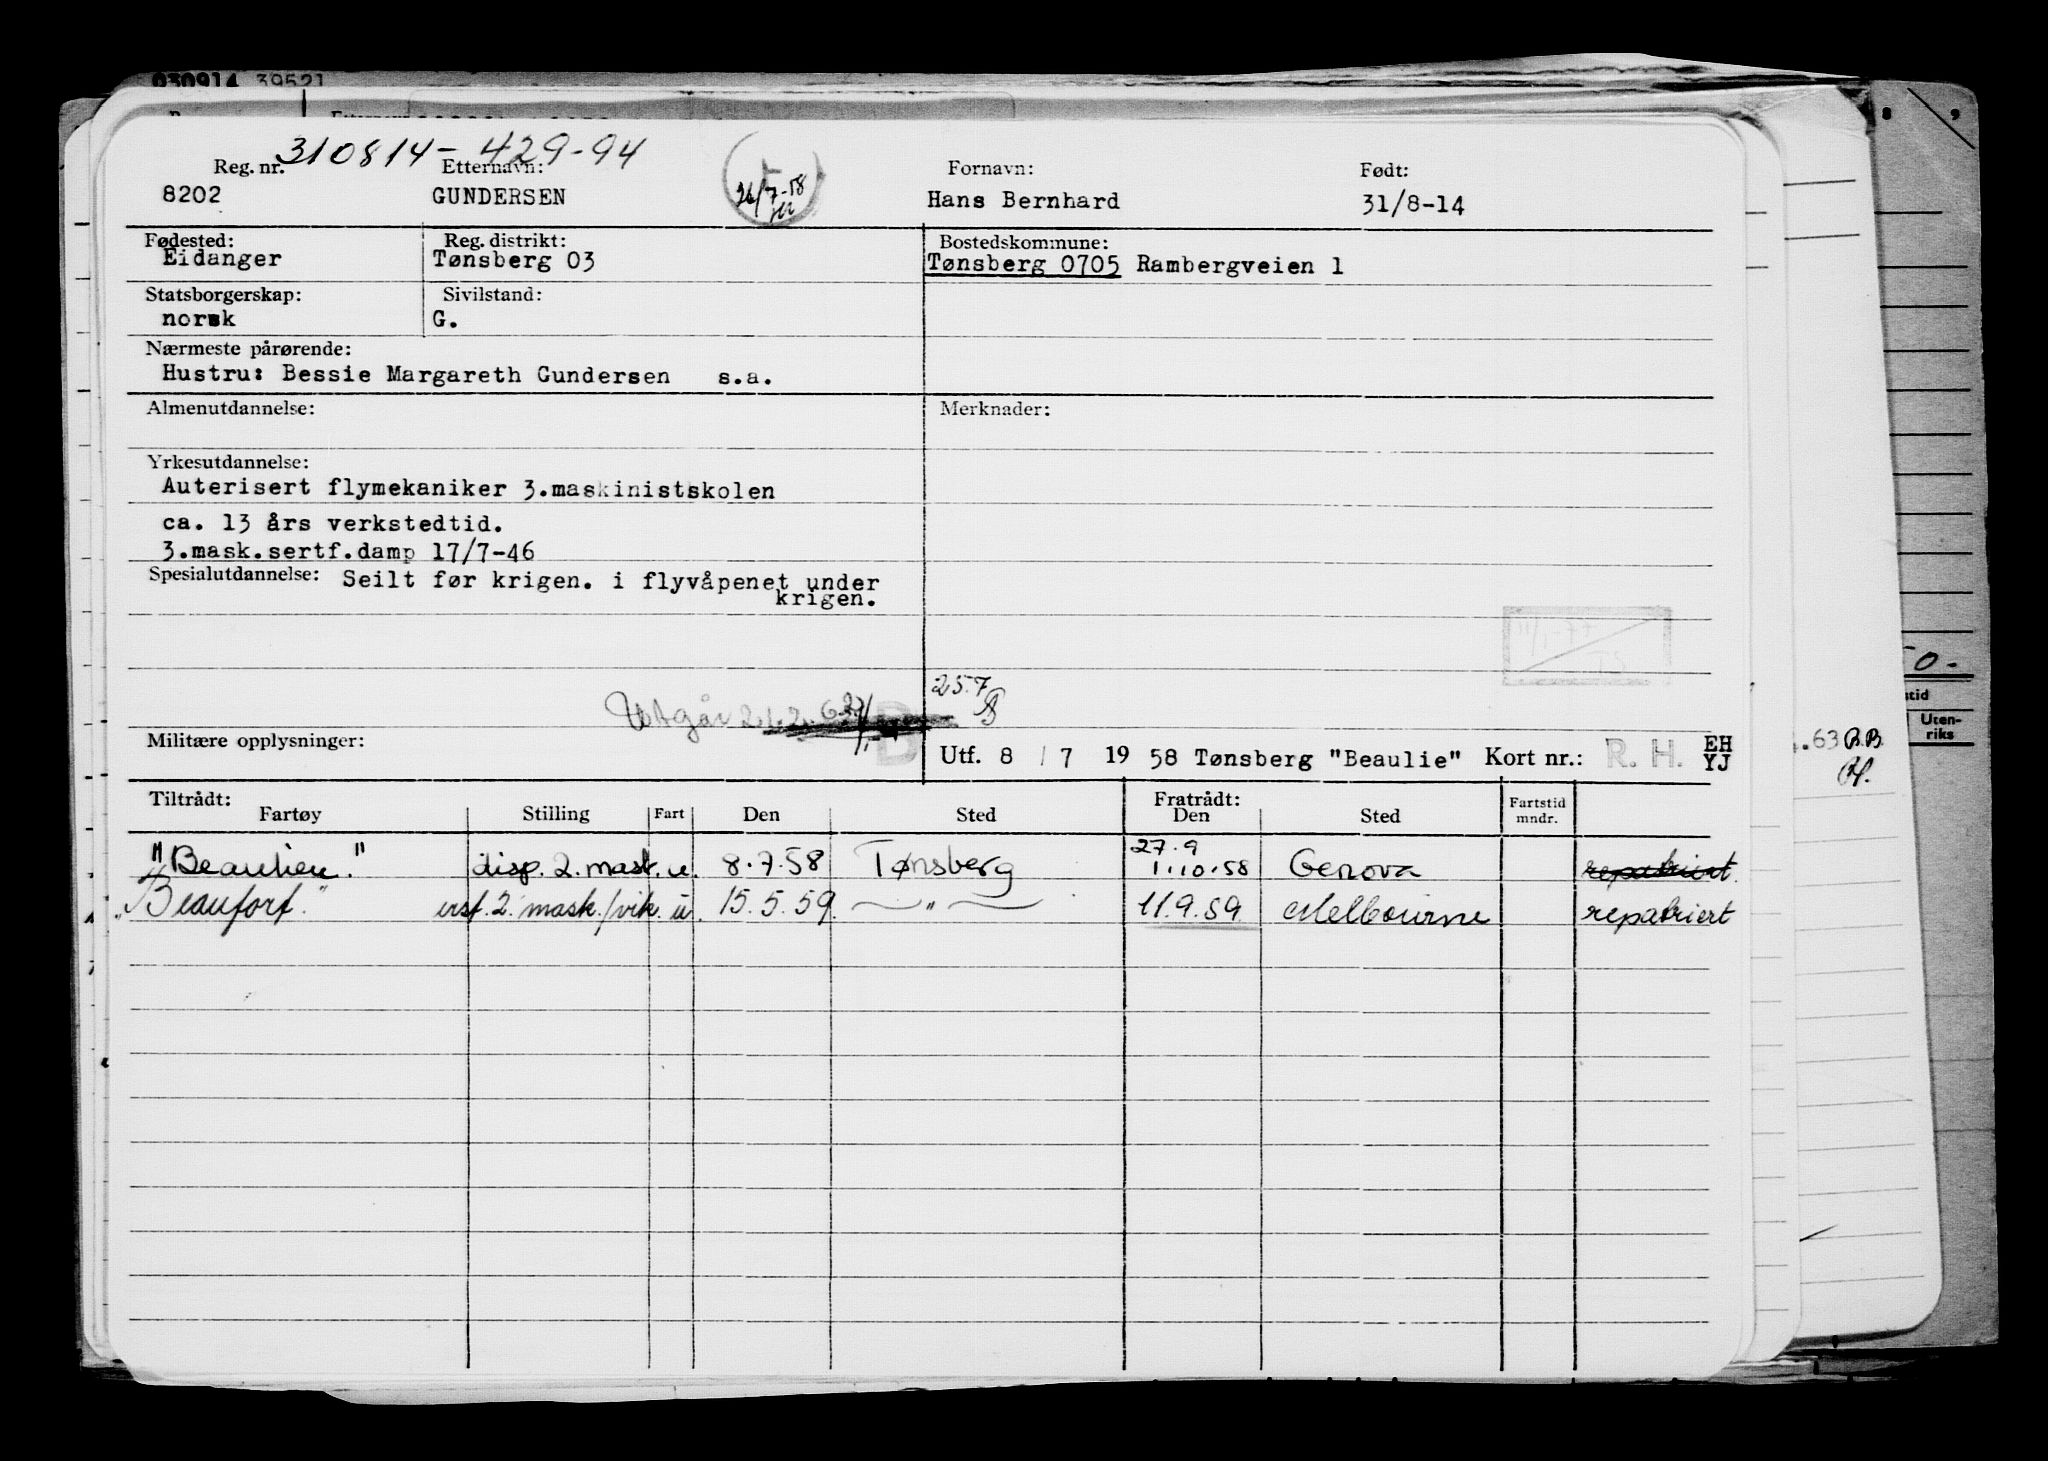 030914 39521
310814-429-94
Reg. nr. Etternavn: Fornavn: Født:
8202 GUNDERSEN 26/7-58 Hans Bernhard 31/8-14
Fødested: Reg. distrikt: Bostedskommune:
Eidanger Tønsberg 03 Tønsberg 0705 Rambergveien 1
Statsborgerskap: Sivilstand:
norsk G.
Nærmeste pårørende:
Hustru: Bessie Margareth Gundersen s.a.
Almenutdannelse: Merknader:
Yrkesutdannelse:
Auterisert flymekaniker 3.maskinistskolen
ca. 13 års verkstedtid.
3.mask.sertf.damp 17/7-46
Spesialutdannelse: Seilt før krigen. i flyvåpenet under
krigen.
257
Utgår
Militære opplysninger:
B
Utf. 8 / 7 19 58 Tønsberg "Beaulie" Kort nr.: R. H. EH
YJ
Tiltrådt: Fratrådt:
Fartøy Stilling Fart Den Sted Den Sted Fartstid
mndr.
27.9
"Beaulieu." disp. 2. mask. u. 8.7.58 Tønsberg 1.10.58 Genova repatriert.
"Beaufort" erst. 2. mask./vik. u. 15.5.59. — " — 11.9.59 Melbourne repatriert
8 9
0-
tid
Uten-
riks
.63 B.B.